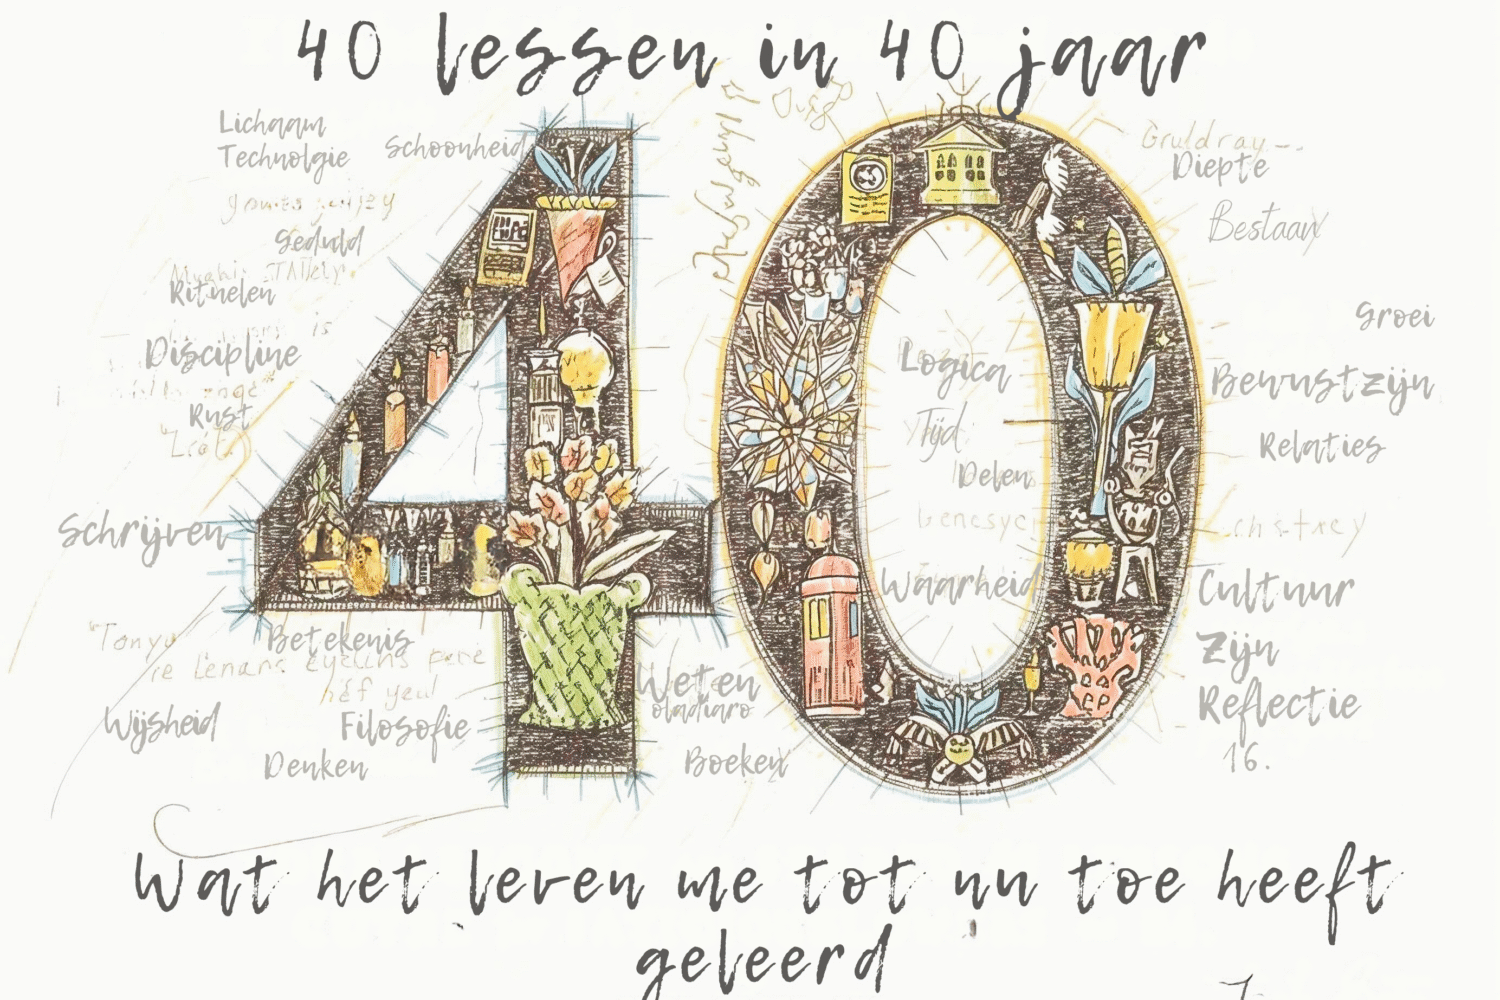 40 lessen in 40 jaar
Lichaam
Technolgie
Schoonheid
Geduld
Rituelen
is
Discipline
Rust
Schrijven
Betekenis
Wijsheid
Filosofie
Denken
Weten
Boeken
Logica
Tijd
Delen
Waarheid
Diepte
Bestaan
Groei
Bewustzijn
Relaties
Cultuur
Zijn
Reflectie
16.
Wat het leven me tot nu toe heeft
geleerd